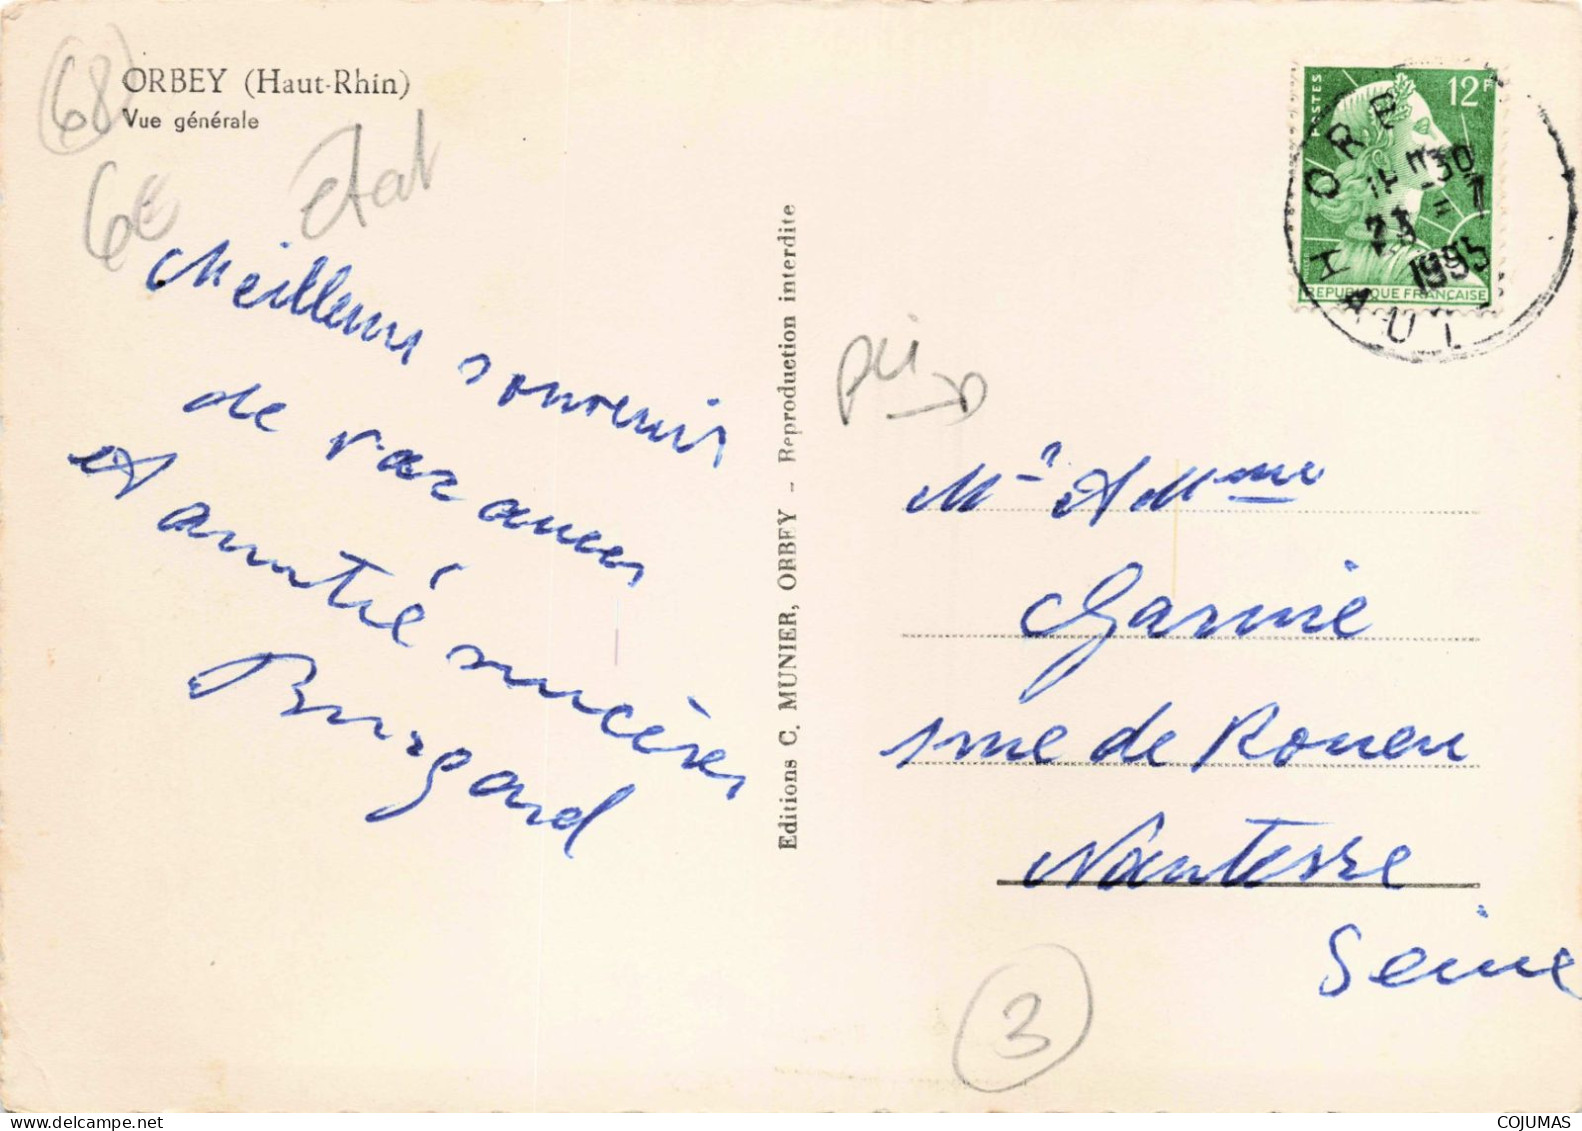 (68)
ORBEY (Haut-Rhin)
Vue générale
6€
état
Meilleurs souvenirs
de vacances
et amitié sincères
Burgard
Editions C. MUNIER, ORBEY - Reproduction interdite
POSTES
12F
REPUBLIQUE FRANÇAISE
ORBE
HAUT
23 - 7
pli
Mr et Mme
Garnie
rue de Rouen
Nanterre
Seine
3
COJUMAS